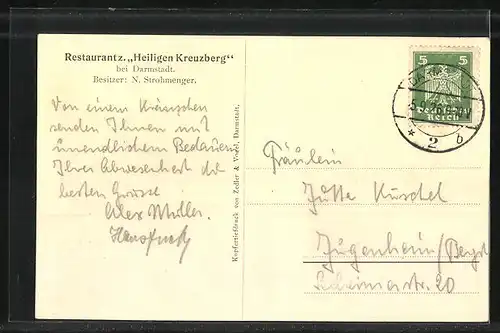 Restaurantz. „Heiligen Kreuzberg“
bei Darmstadt.
Besitzer: N. Strohmenger.
Von einem Kränzchen
senden Ihnen mit
unendlichem Bedauern
Ihrer Abwesenheit die
besten Grüsse
Müller.
Kupfertiefdruck von Zedler & Vogel, Darmstadt.
5 5
Deutsches
Reich
* 2 b
Fräulein
Jutta Kuschel
Jugenheim/Bergst
20